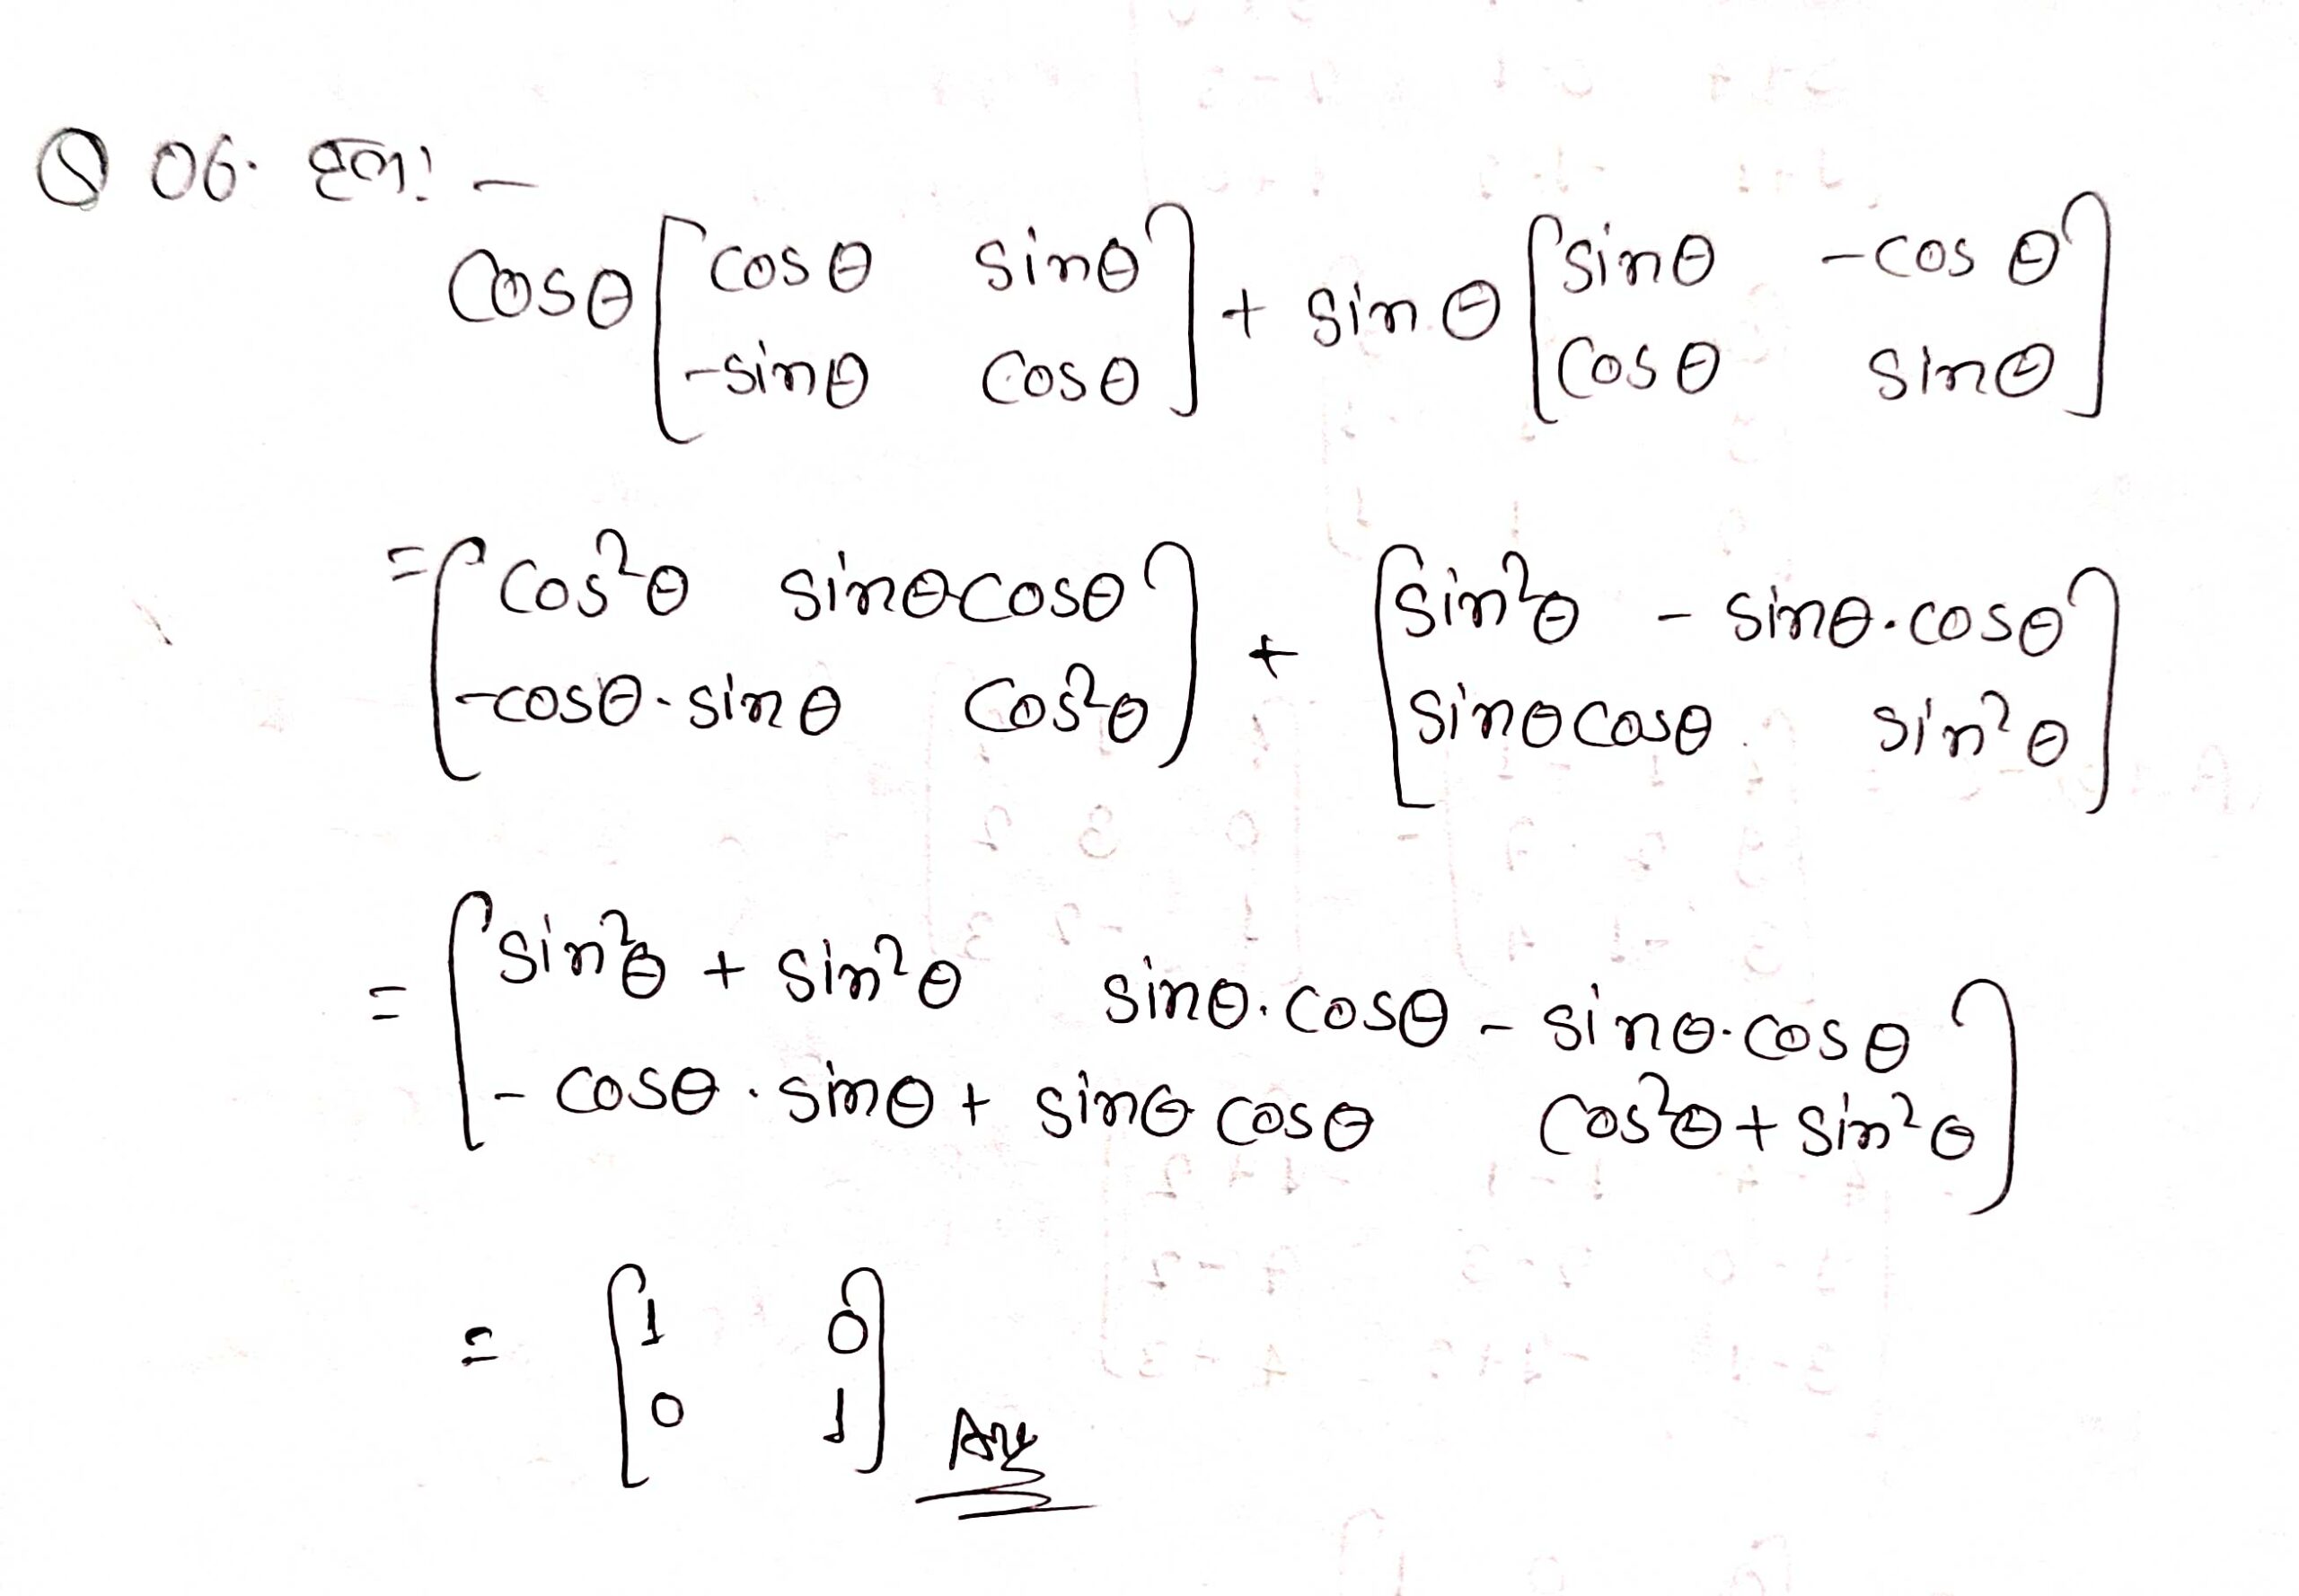 Q 06. हल: -
cosθ [cosθ sinθ -sinθ cosθ] + sinθ [sinθ -cosθ cosθ sinθ]
= [cos²θ sinθcosθ -cosθ.sinθ cos²θ] + [sin²θ - sinθ.cosθ sinθcosθ sin²θ]
= [sin²θ + sin²θ sinθ.cosθ - sinθ.cosθ - cosθ.sinθ + sinθ cosθ cos²θ + sin²θ]
= [1 0 0 1] Ans